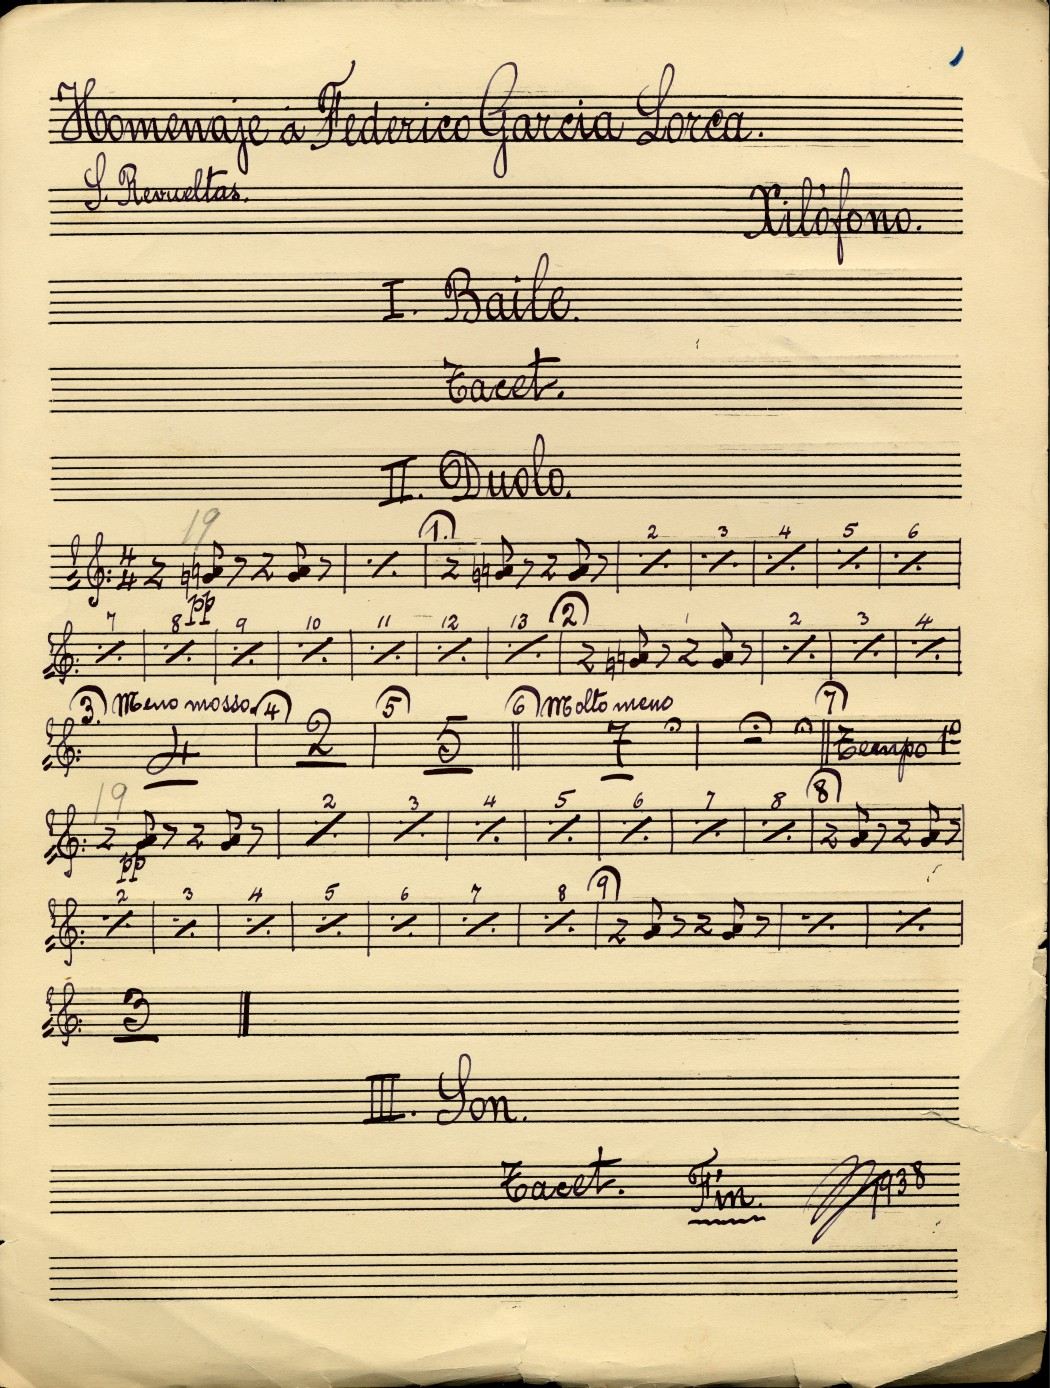 Homenaje á Federico Garcia Lorca.
S. Revueltas.
Xilófono.
I. Baile.
Tacet.
II. Duolo.
19
1. 2 3 4 5 6
4 4
pp
7 8 9 10 11 12 13 2 2 3 4
3. Meno mosso. 4 5 6 Molto meno 7
4 2 5 7 Tempo 1º
19 2 3 4 5 6 7 8 8
pp
2 3 4 5 6 7 8 9
3
III. Son.
Tacet. Fin. 1938